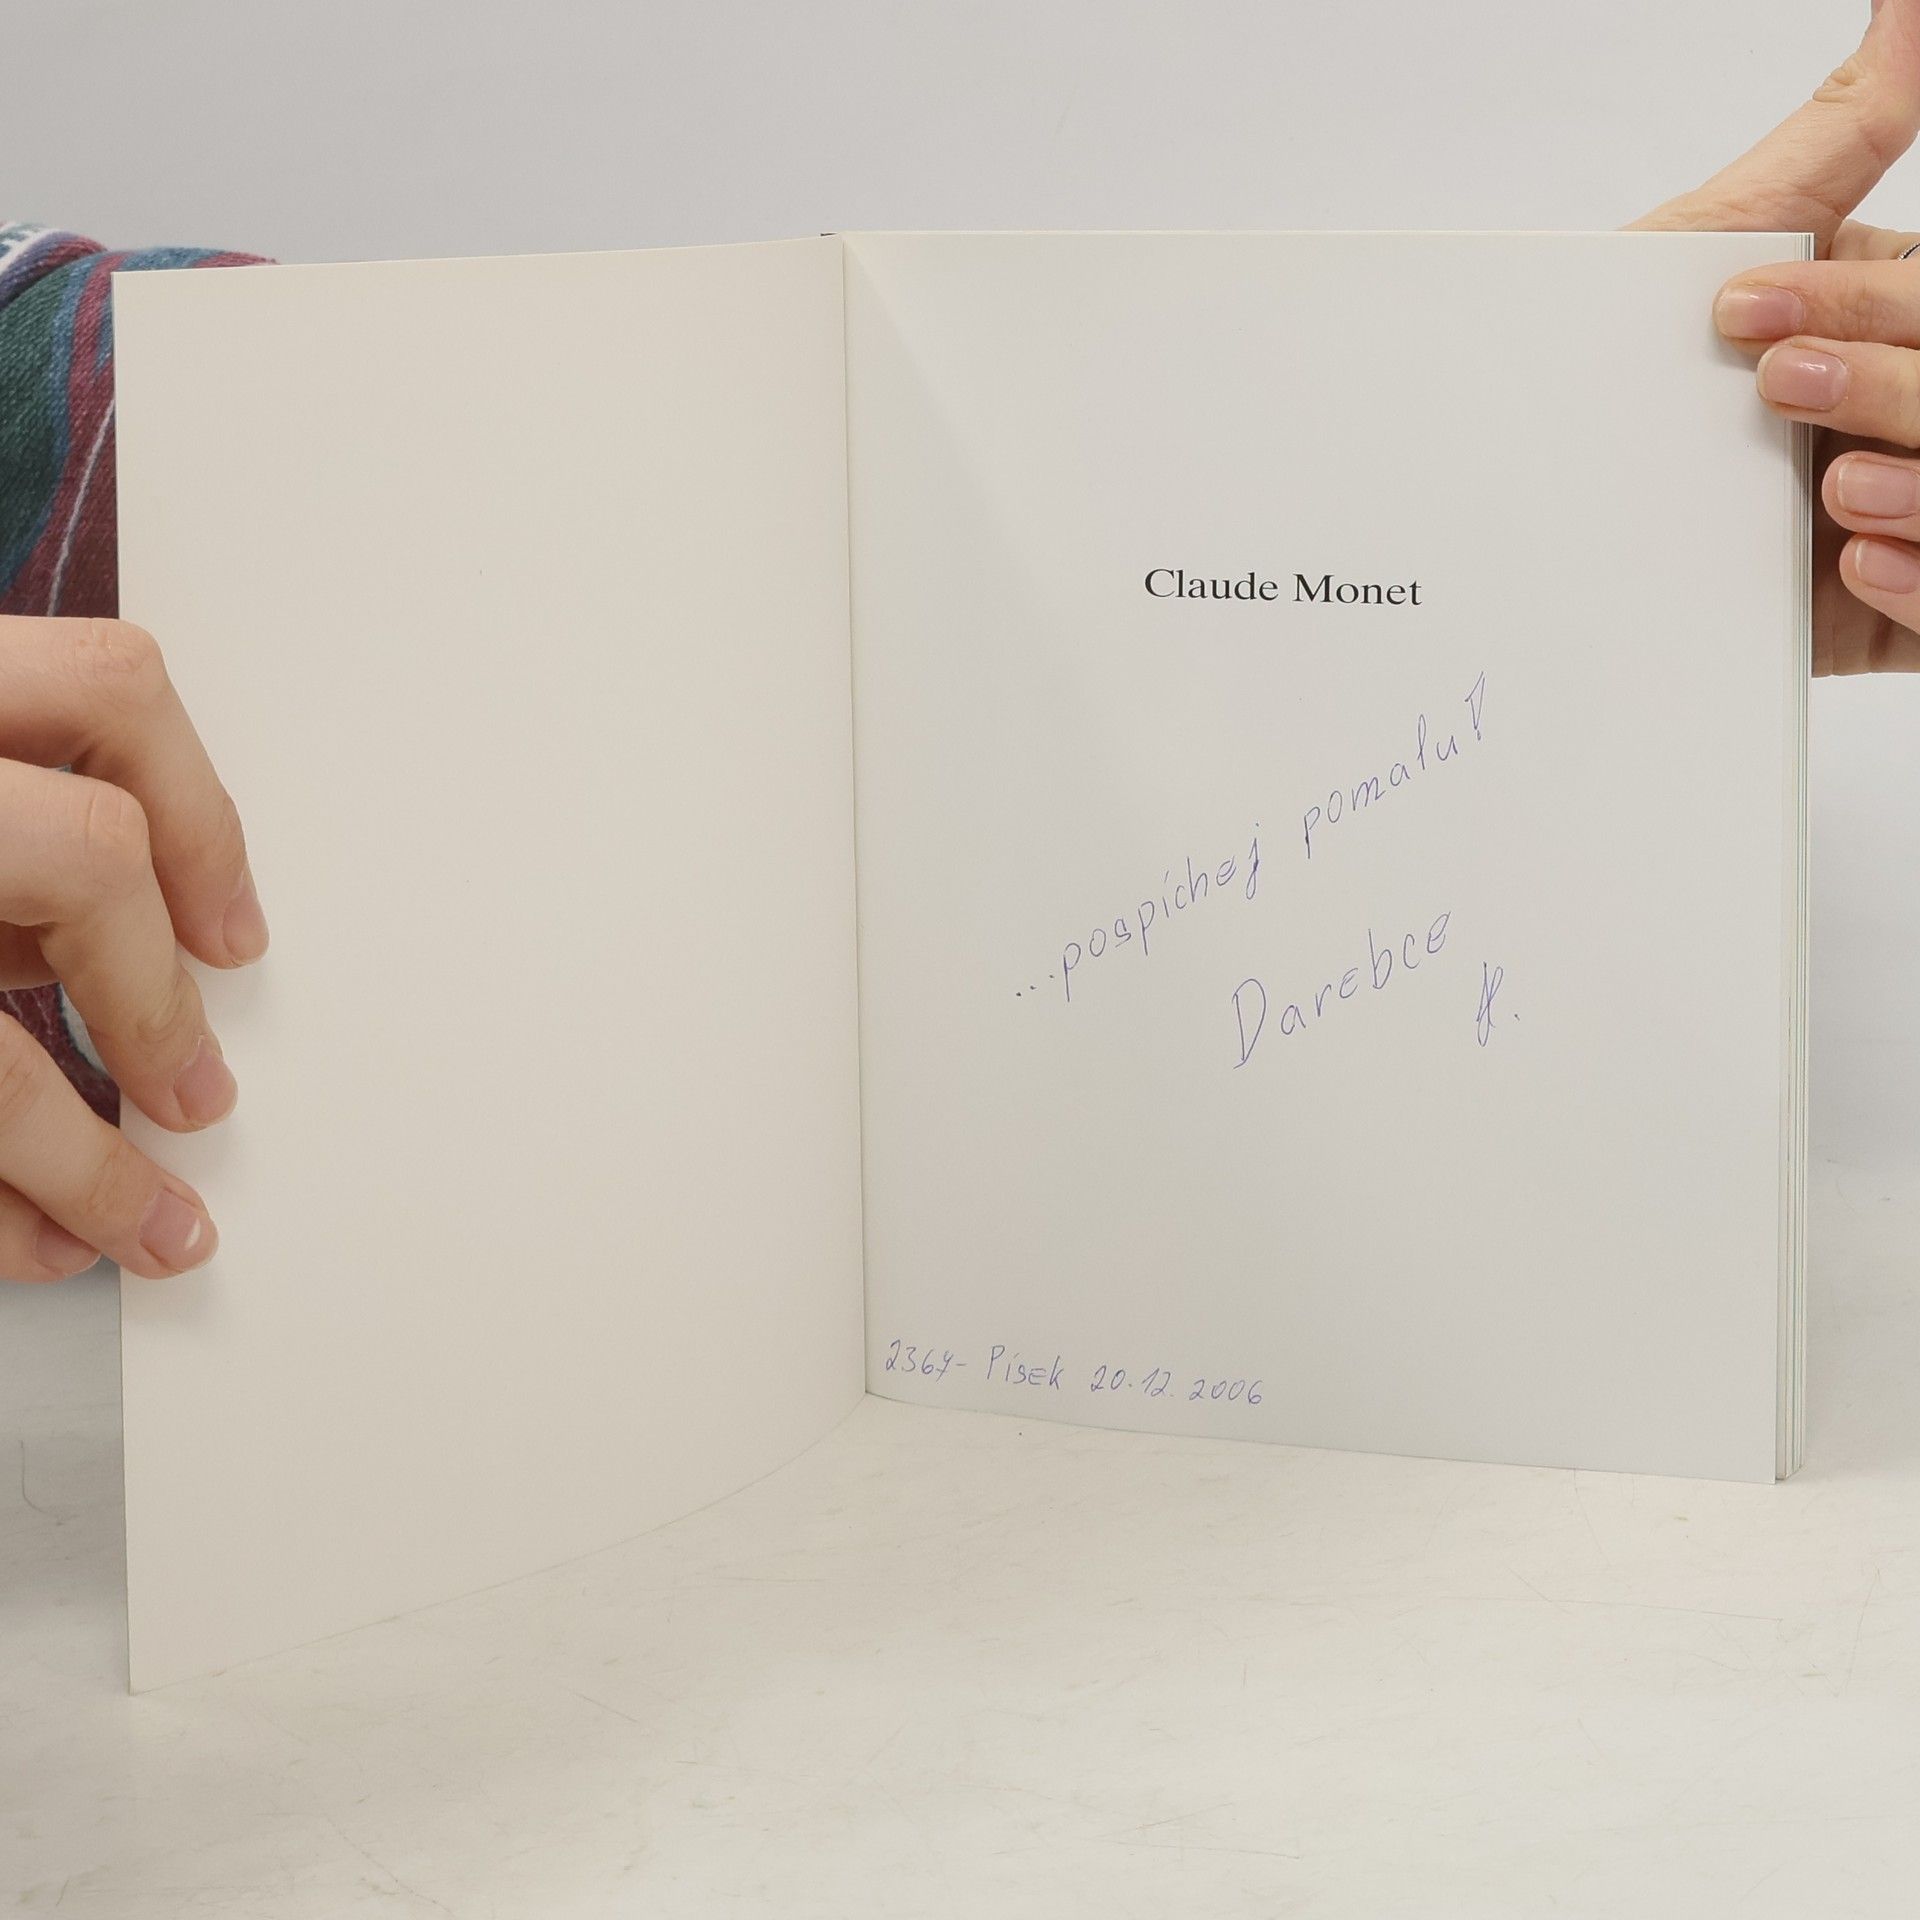 Claude Monet
...pospíchej pomalu!
Darebce
20.12.2006
Písek